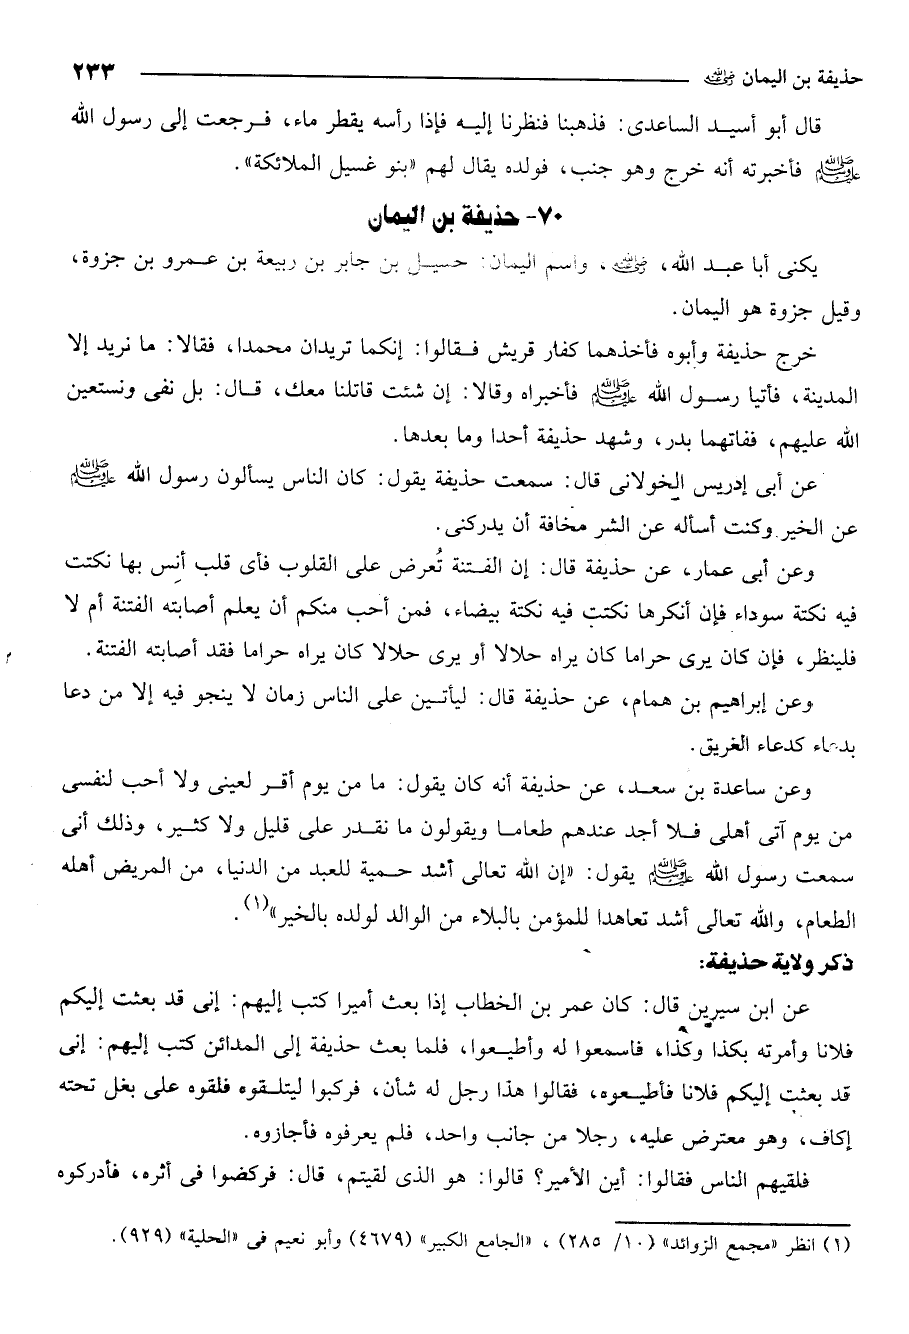 حذيفة بن اليمان رضي الله عنه ٢٣٣
قال أبو أسيد الساعدى: فذهبنا فنظرنا إليه فإذا رأسه يقطر ماء، فرجعت إلى رسول الله
ﷺ فأخبرته أنه خرج وهو جنب، فولده يقال لهم «بنو غسيل الملائكة».
٧٠- حذيفة بن اليمان
يكنى أبا عبد الله، رضي الله عنه، واسم اليمان: حسيل بن جابر بن ربيعة بن عمرو بن جزوة،
وقيل جزوة هو اليمان.
خرج حذيفة وأبوه فأخذهما كفار قريش فقالوا: إنكما تريدان محمدا، فقالا: ما نريد إلا
المدينة، فأتيا رسول الله ﷺ فأخبراه وقالا: إن شئت قاتلنا معك، قال: بل نفى ونستعين
الله عليهم، ففاتهما بدر، وشهد حذيفة أحدا وما بعدها.
عن أبى إدريس الخولانى قال: سمعت حذيفة يقول: كان الناس يسألون رسول الله ﷺ
عن الخير وكنت أسأله عن الشر مخافة أن يدركنى.
وعن أبى عمار، عن حذيفة قال: إن الفتنة تُعرض على القلوب فأى قلب أنِس بها نكتت
فيه نكتة سوداء فإن أنكرها نكتت فيه نكتة بيضاء، فمن أحب منكم أن يعلم أصابته الفتنة أم لا
فلينظر، فإن كان يرى حراما كان يراه حلالا أو يرى حلالا كان يراه حراما فقد أصابته الفتنة.
وعن إبراهيم بن همام، عن حذيفة قال: ليأتين على الناس زمان لا ينجو فيه إلا من دعا
بدعاء كدعاء الغريق.
وعن ساعدة بن سعد، عن حذيفة أنه كان يقول: ما من يوم أقر لعينى ولا أحب لنفسى
من يوم آتى أهلى فلا أجد عندهم طعاما ويقولون ما نقدر على قليل ولا كثير، وذلك أنى
سمعت رسول الله ﷺ يقول: «إن الله تعالى أشد حمية للعبد من الدنيا، من المريض أهله
الطعام، والله تعالى أشد تعاهدا للمؤمن بالبلاء من الوالد لولده بالخير»(١).
ذكر ولاية حذيفة:
عن ابن سيرين قال: كان عمر بن الخطاب إذا بعث أميرا كتب إليهم: إنى قد بعثت إليكم
فلانا وأمرته بكذا وكذا، فاسمعوا له وأطيعوا، فلما بعث حذيفة إلى المدائن كتب إليهم: إنى
قد بعثت إليكم فلانا فأطيعوه، فقالوا هذا رجل له شأن، فركبوا ليتلقوه فلقوه على بغل تحته
إكاف، وهو معترض عليه، رجلا من جانب واحد، فلم يعرفوه فأجازوه.
فلقيهم الناس فقالوا: أين الأمير؟ قالوا: هو الذى لقيتم، قال: فركضوا فى أثره، فأدركوه
(١) انظر «مجمع الزوائد» (١٠/ ٢٨٥) ، «الجامع الكبير» (٤٦٧٩) وأبو نعيم فى «الحلية» (٩٢٩).